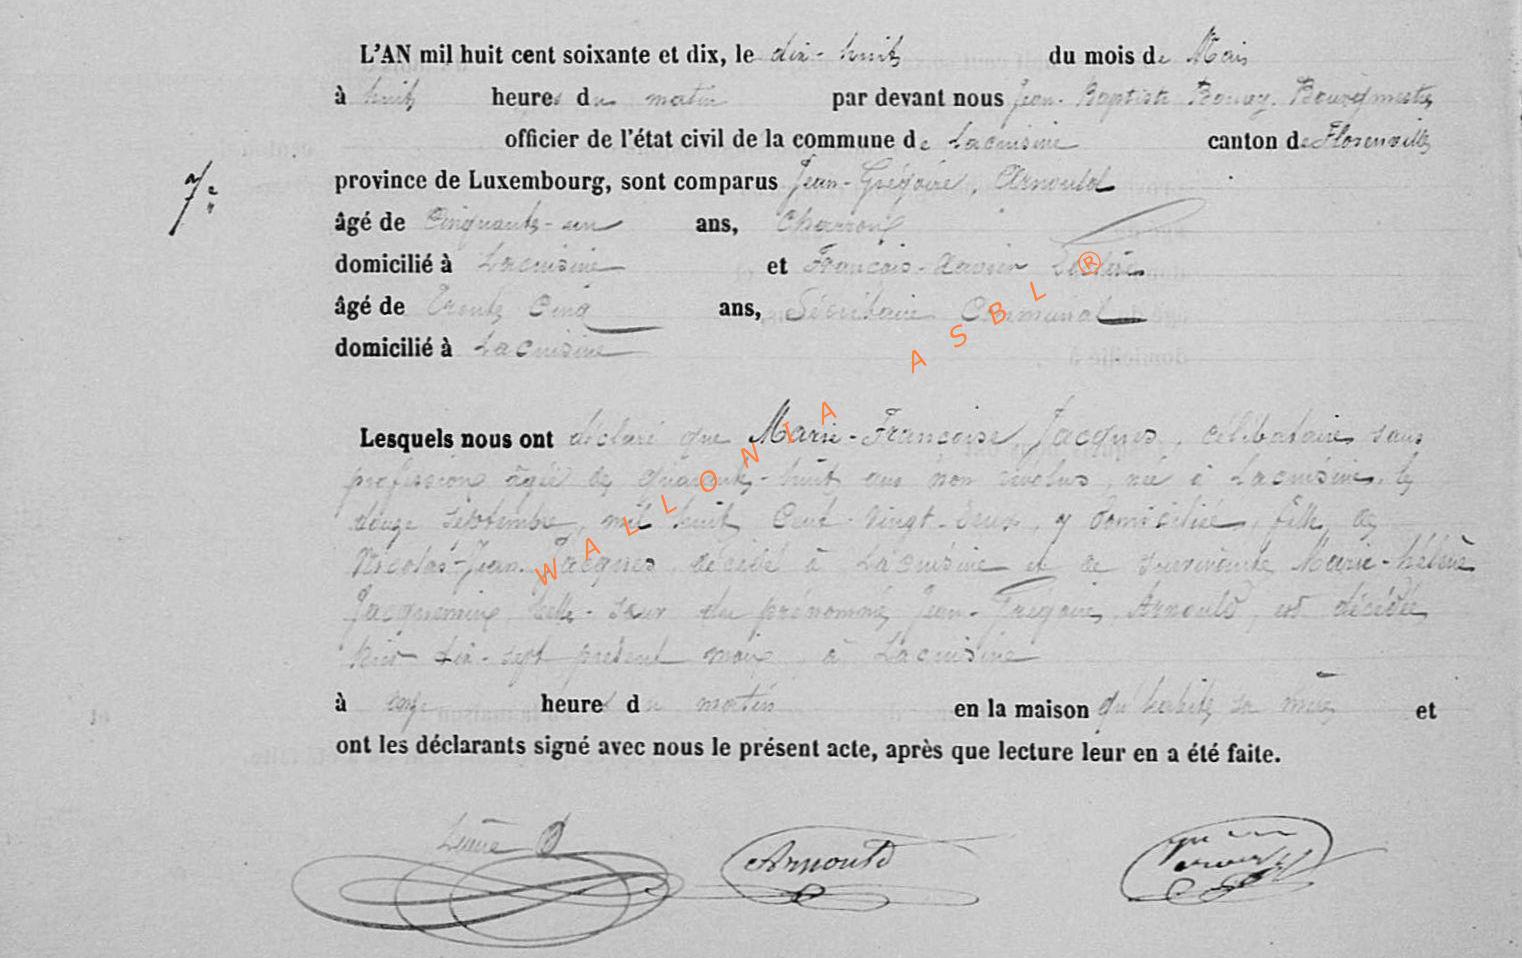 L'AN mil huit cent soixante et dix, le dix-huit du mois de Mai
à huit heures du matin par devant nous Jean-Baptiste Bourgmestre
officier de l'état civil de la commune de Lacuisine canton de Florenville
7e
province de Luxembourg, sont comparus Jean-Grégoire, Arnould
âgé de Cinquante-un ans, Charron
domicilié à Lacuisine et François-Xavier
âgé de Trente Cinq ans, Sécrétaire Communal
domicilié à Lacuisine
Lesquels nous ont déclaré que Marie-Françoise Jacques, célibataire, sans
profession, âgée de quarante-huit ans non révolus, née à Lacuisine, le
douze septembre, mil huit Cent-vingt-deux, y domiciliée, fille de
Nicolas-Jean Jacques, décédé à Lacuisine et de survivante Marie-hélène
Jacquemin, belle-sœur du prénommé Jean-Grégoire, Arnould, est décédée
hier dix-sept présent mois, à Lacuisine
à onze heures du matin en la maison qu'habite sa mère et
ont les déclarants signé avec nous le présent acte, après que lecture leur en a été faite.
Arnould
WALLONIA ASBL ®